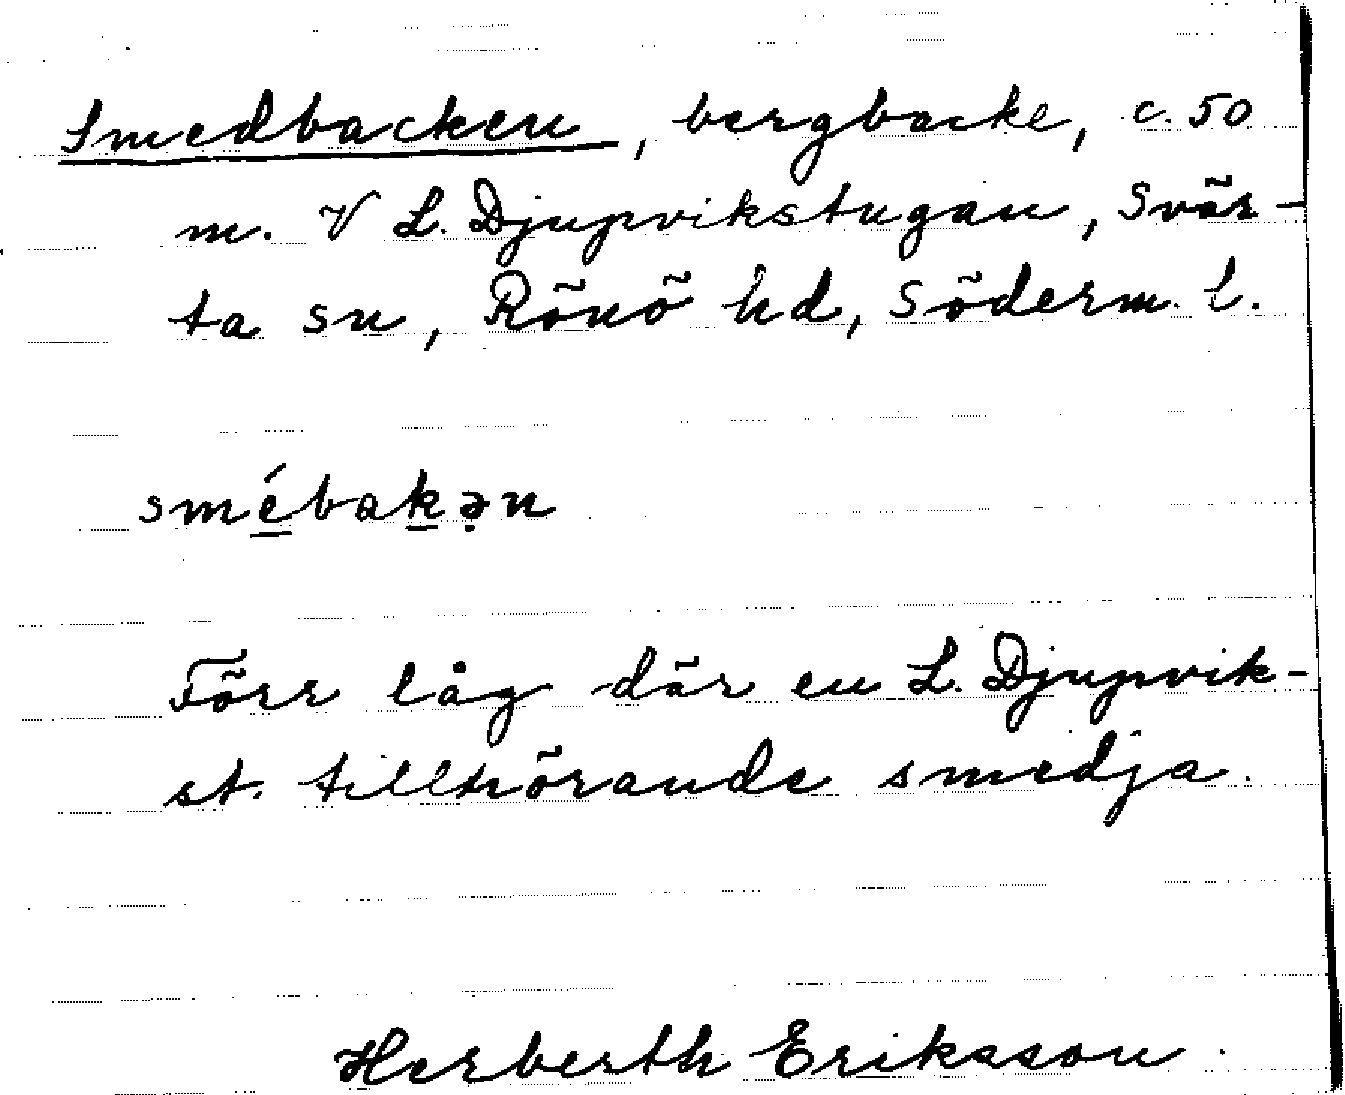 Smedbacken, bergbacke, c. 50
m. V L. Djupvikstugan, Svär-
ta sn, Rönö hd, Söderm. l.
smébakən
Förr låg där en L. Djupvik-
st. tillhörande smedja.
Herberth Eriksson.